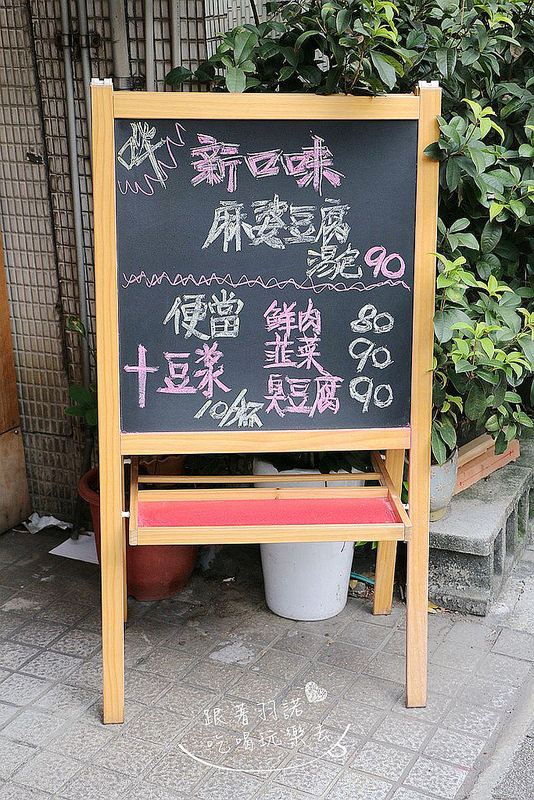 新口味
麻婆豆腐
湯包90
便當 鮮肉 80
十豆漿 韮菜 90
10/杯 臭豆腐 90
跟著羽諾
吃喝玩樂去